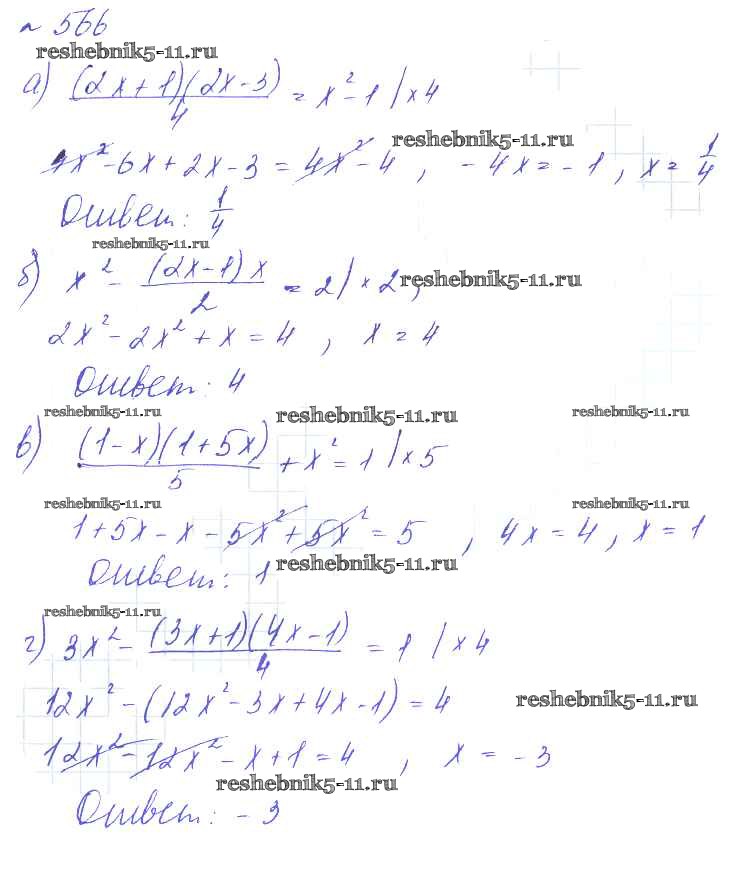 № 566
reshebnik5-11.ru
а) (2x+1)(2x-3)/4 = x²-1 | × 4
reshebnik5-11.ru
4x²-6x+2x-3 = 4x²-4, -4x = -1, x = 1/4
Ответ: 1/4
reshebnik5-11.ru
б) x² - (2x-1)x/2 = 2 | × 2,
reshebnik5-11.ru
2x²-2x²+x = 4, x = 4
Ответ: 4
reshebnik5-11.ru reshebnik5-11.ru reshebnik5-11.ru
в) (1-x)(1+5x)/5 + x² = 1 | × 5
reshebnik5-11.ru reshebnik5-11.ru
1+5x-x-5x²+5x² = 5, 4x = 4, x = 1
reshebnik5-11.ru
Ответ: 1
reshebnik5-11.ru
г) 3x² - (3x+1)(4x-1)/4 = 1 | × 4
12x² - (12x²-3x+4x-1) = 4
reshebnik5-11.ru
12x²-12x²-x+1 = 4, x = -3
reshebnik5-11.ru
Ответ: -3